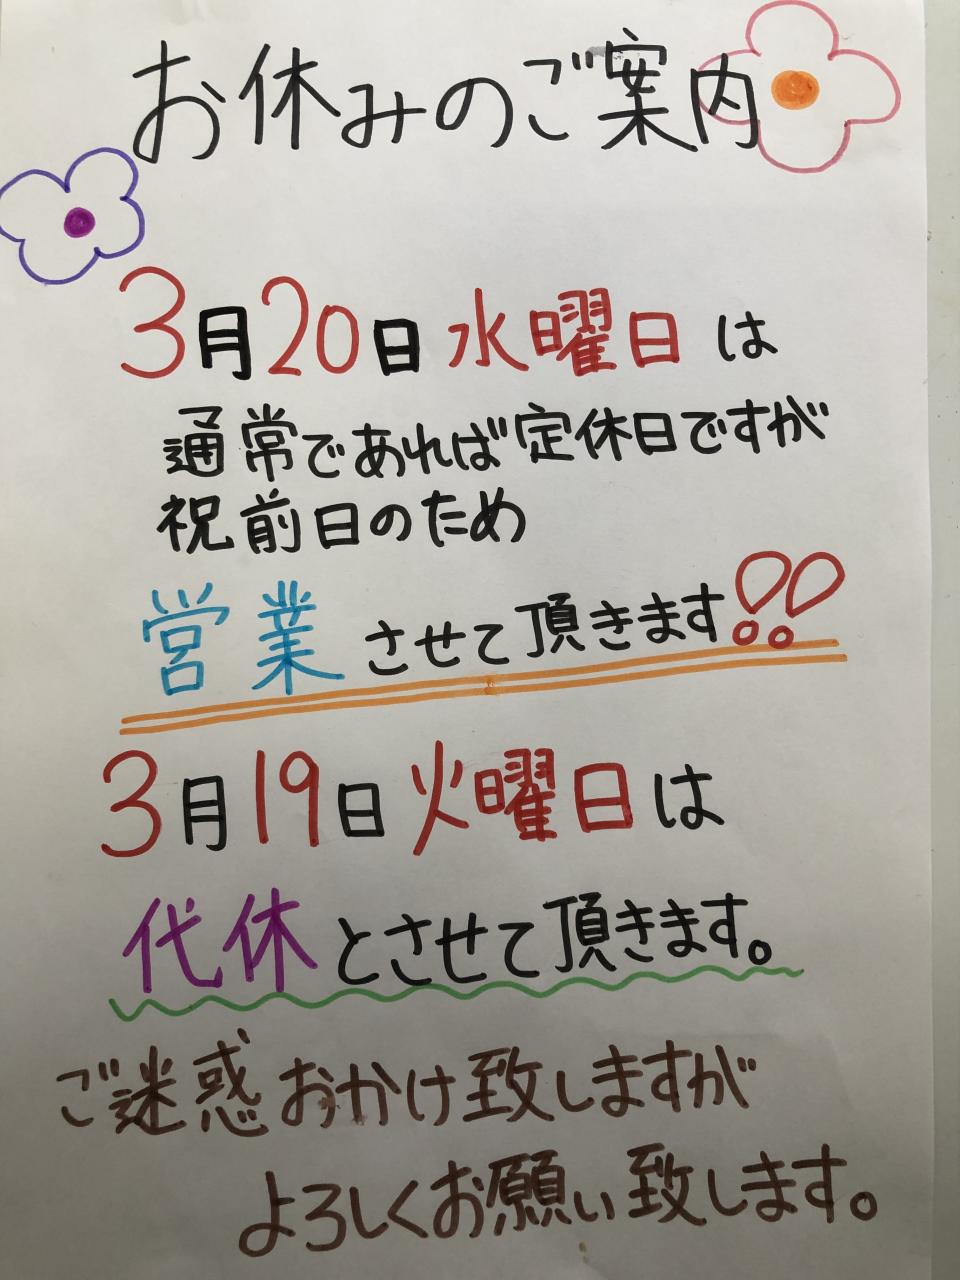 お休みのご案内
3月20日水曜日は
通常であれば定休日ですが
祝前日のため
営業させて頂きます!!
3月19日火曜日は
代休とさせて頂きます。
ご迷惑おかけ致しますが
よろしくお願い致します。